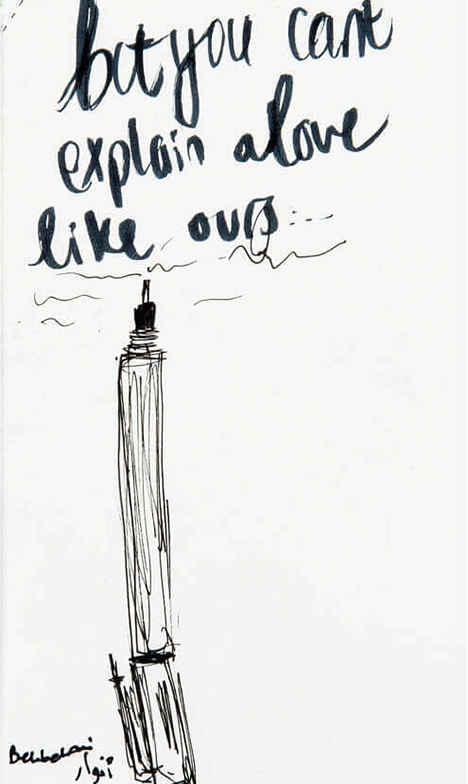 but you cant
explain a love
like ours
Behbehani
أنوار